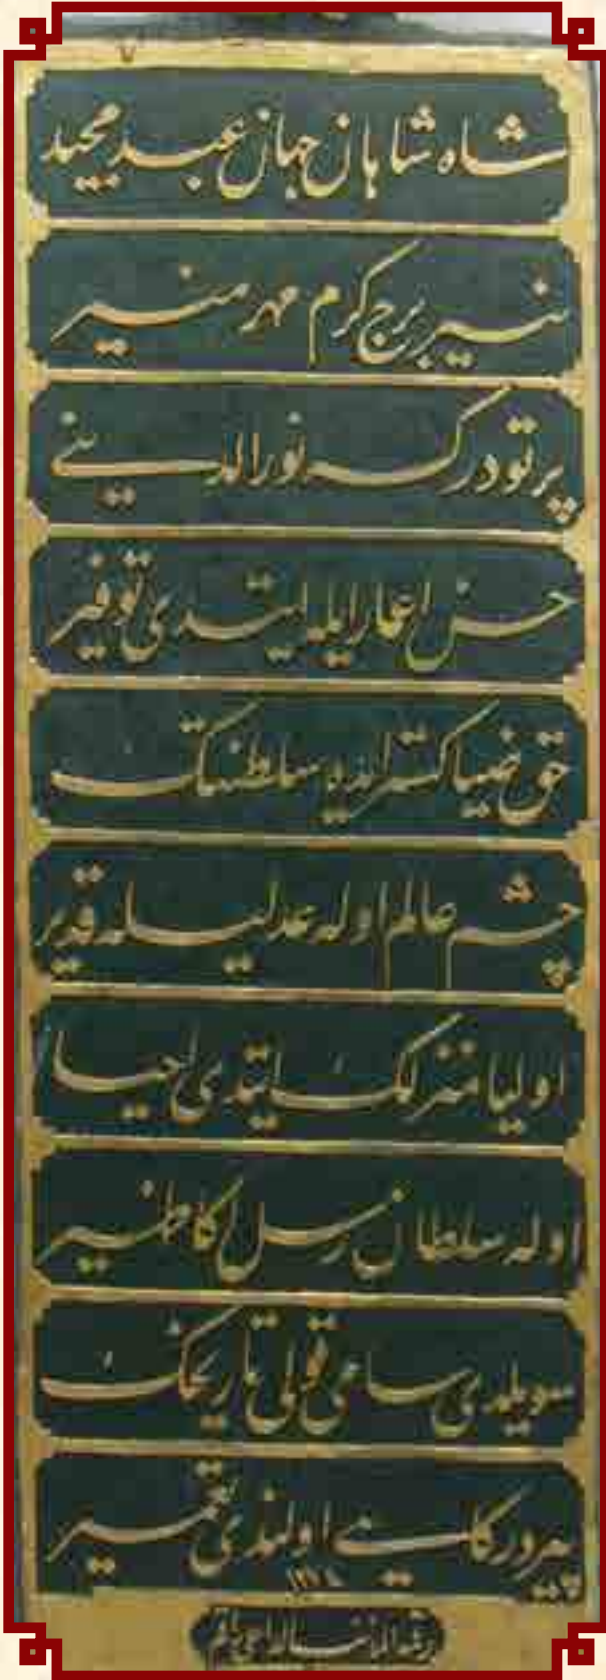 شاه شاهان جهان عبد مجید
نیر برج کرم مهر منیر
پرتو درگه نور الدینی
حسن اعمار ایله ایتدی توفیر
حق ضیاکستر ایده سلطنتک
چشم عالم اوله عدلیله قریر
اولیا منزلک ایتدی احیا
اوله سلطان رسل اکا ظهیر
سویلدی ساعی قولی تاریخک
پیر درگاهی اولندی تعمیر